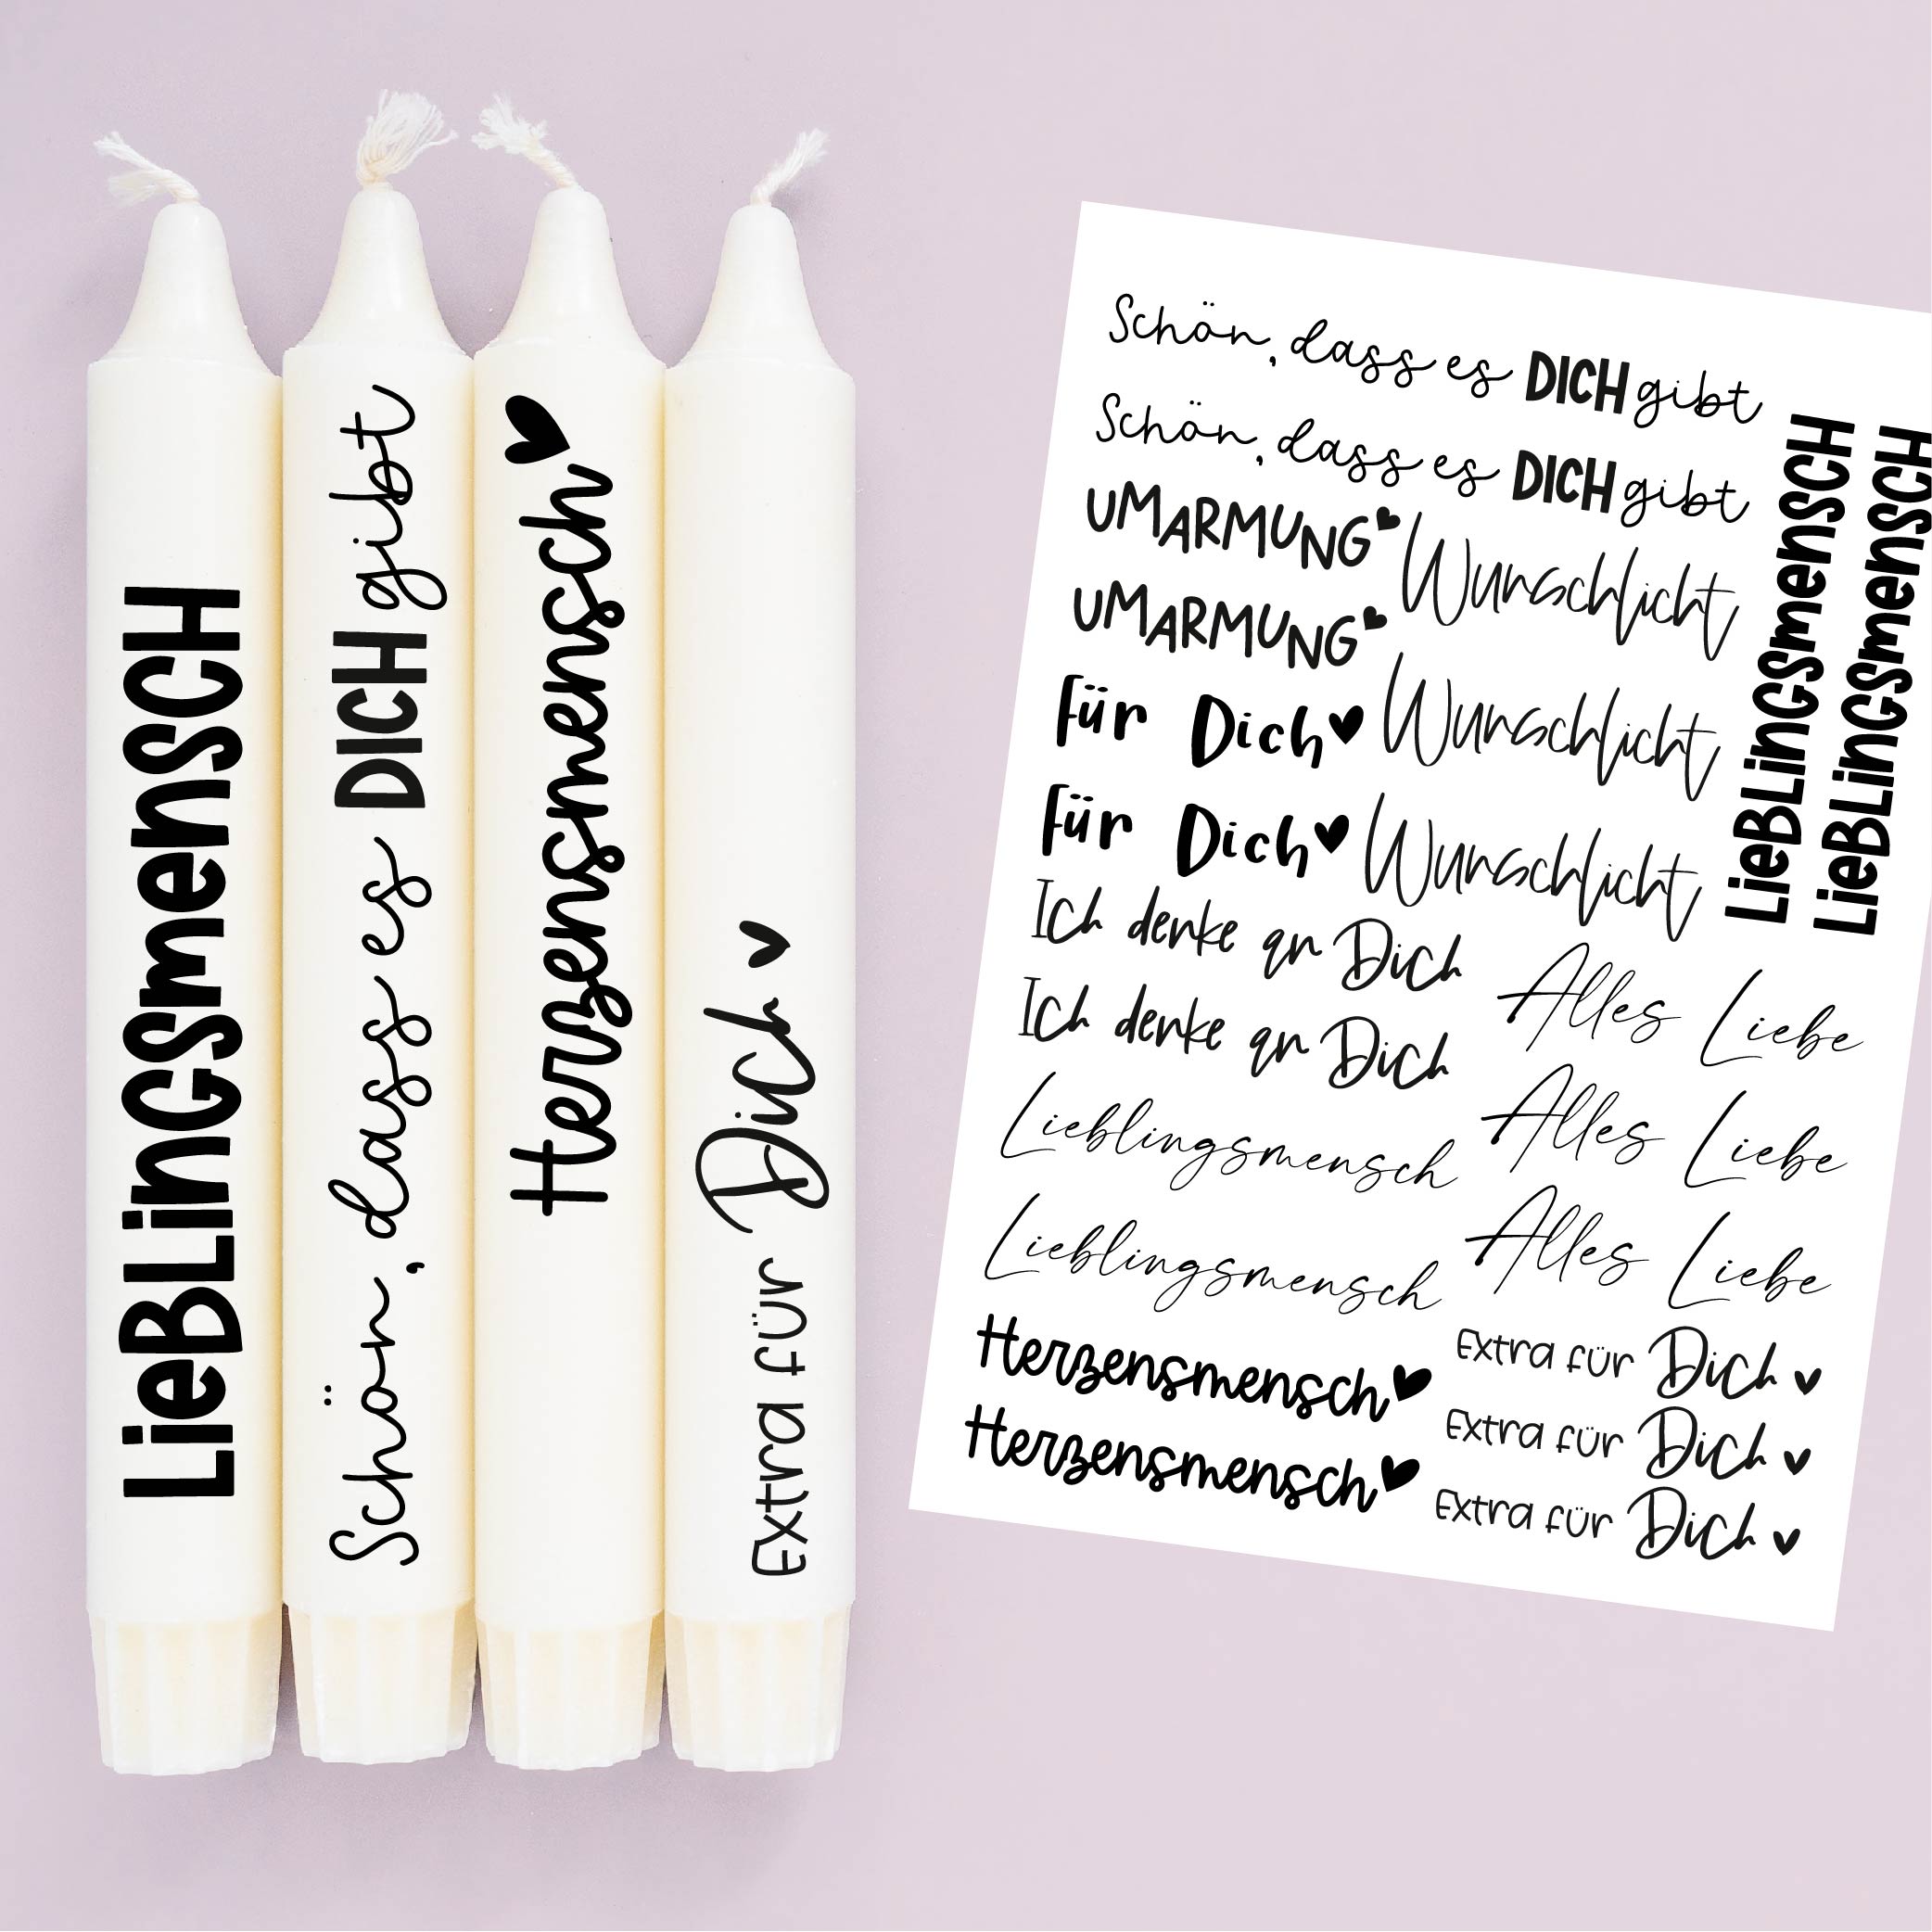 LieBLinGSmenSCH
Schön, dass es DICH gibt
Herzensmensch
Extra für Dich
Schön, dass es DICH gibt
Schön, dass es DICH gibt
UMARMUNG
UMARMUNG
Für Dich
Für Dich
Ich denke an Dich
Ich denke an Dich
Lieblingsmensch
Lieblingsmensch
Herzensmensch
Herzensmensch
Wunschlicht
Wunschlicht
Wunschlicht
Alles Liebe
Alles Liebe
Alles Liebe
Extra für Dich
Extra für Dich
Extra für Dich
LieBLinGSmenSCH
LieBLinGSmenSCH